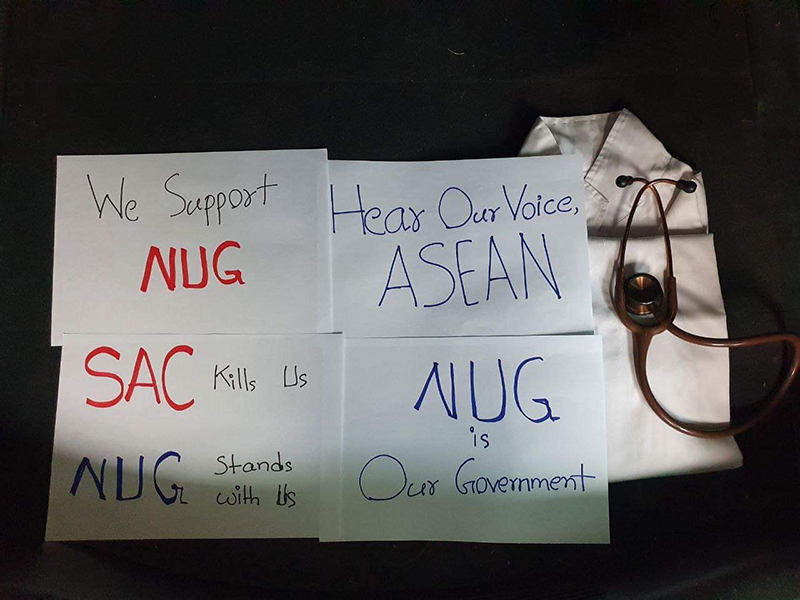 We Support
NUG
Hear Our Voice,
ASEAN
SAC Kills Us
NUG Stands
with Us
NUG
is
Our Government